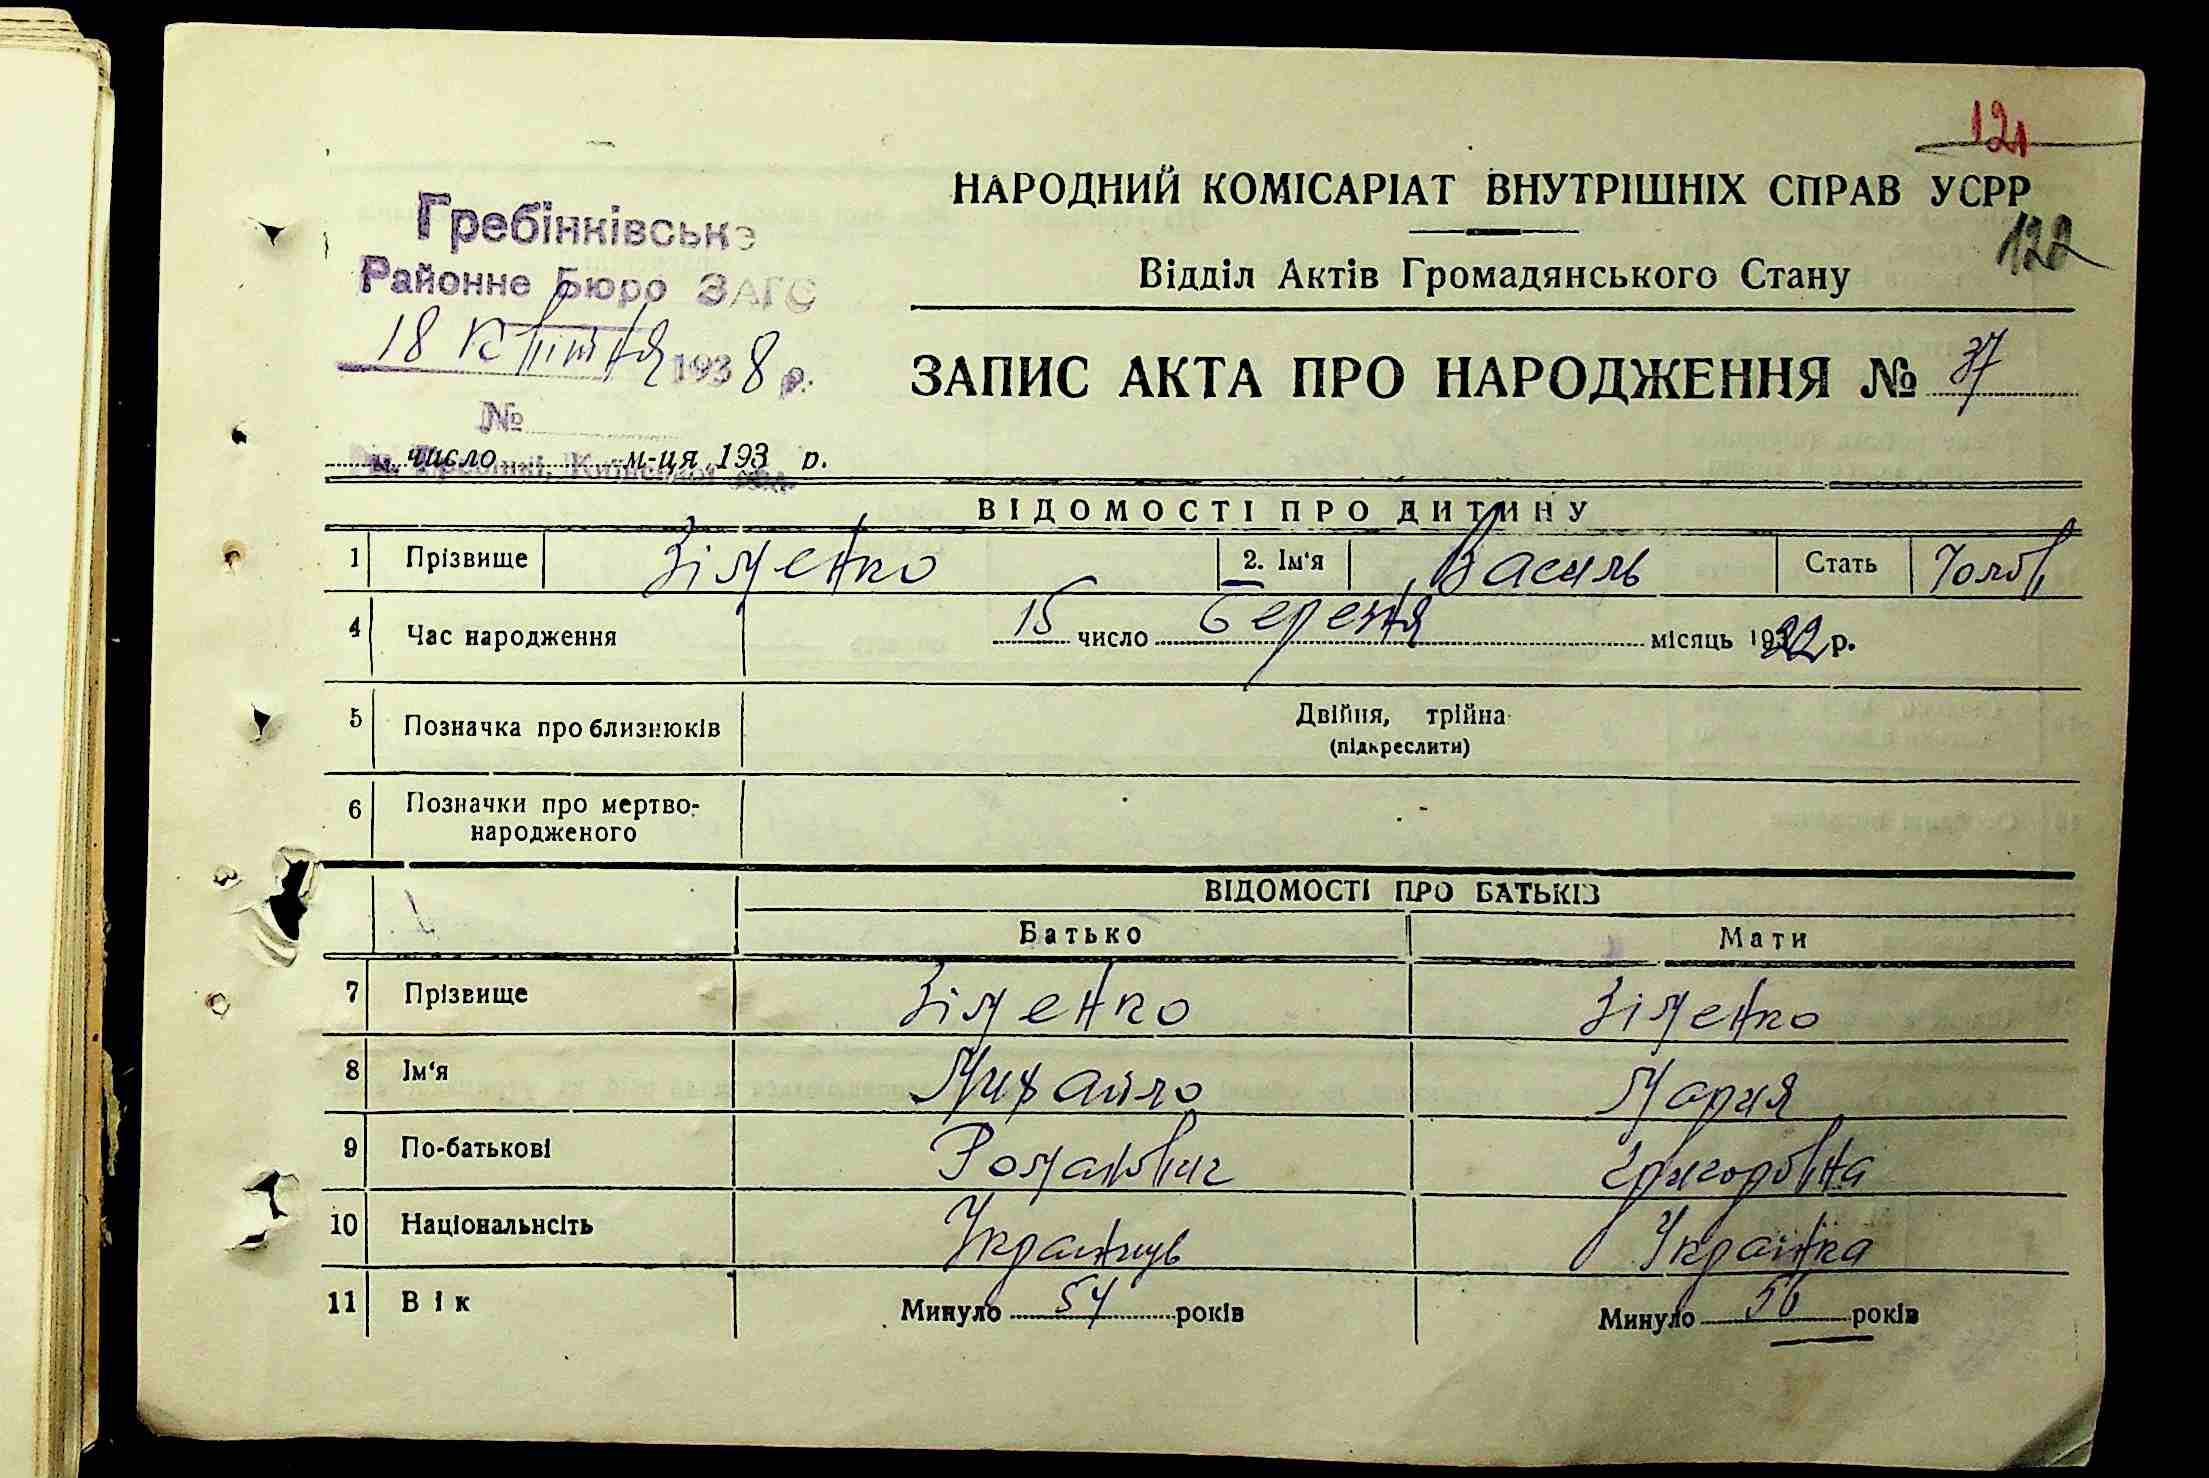 121
НАРОДНИЙ КОМІСАРІАТ ВНУТРІШНІХ СПРАВ УСРР
122
Відділ Актів Громадянського Стану
Гребінківське
Районне Бюро ЗАГС
18 квітня 1938 р.
№
ЗАПИС АКТА ПРО НАРОДЖЕННЯ № 37
число м-ця 193 р.
ВІДОМОСТІ ПРО ДИТИНУ
1 Прізвище Зіменко 2. Ім'я Василь Стать Чолов
4 Час народження 15 число березня місяць 1922 р.
5 Позначка про близнюків Двійня, трійна
(підкреслити)
6 Позначки про мертво-
народженого
ВІДОМОСТІ ПРО БАТЬКІВ
Батько Мати
7 Прізвище Зіменко Зіменко
8 Ім'я Михайло Мария
9 По-батькові Романович Григоровна
10 Національнсіть Українць Українка
11 Вік Минуло 54 років Минуло 56 років